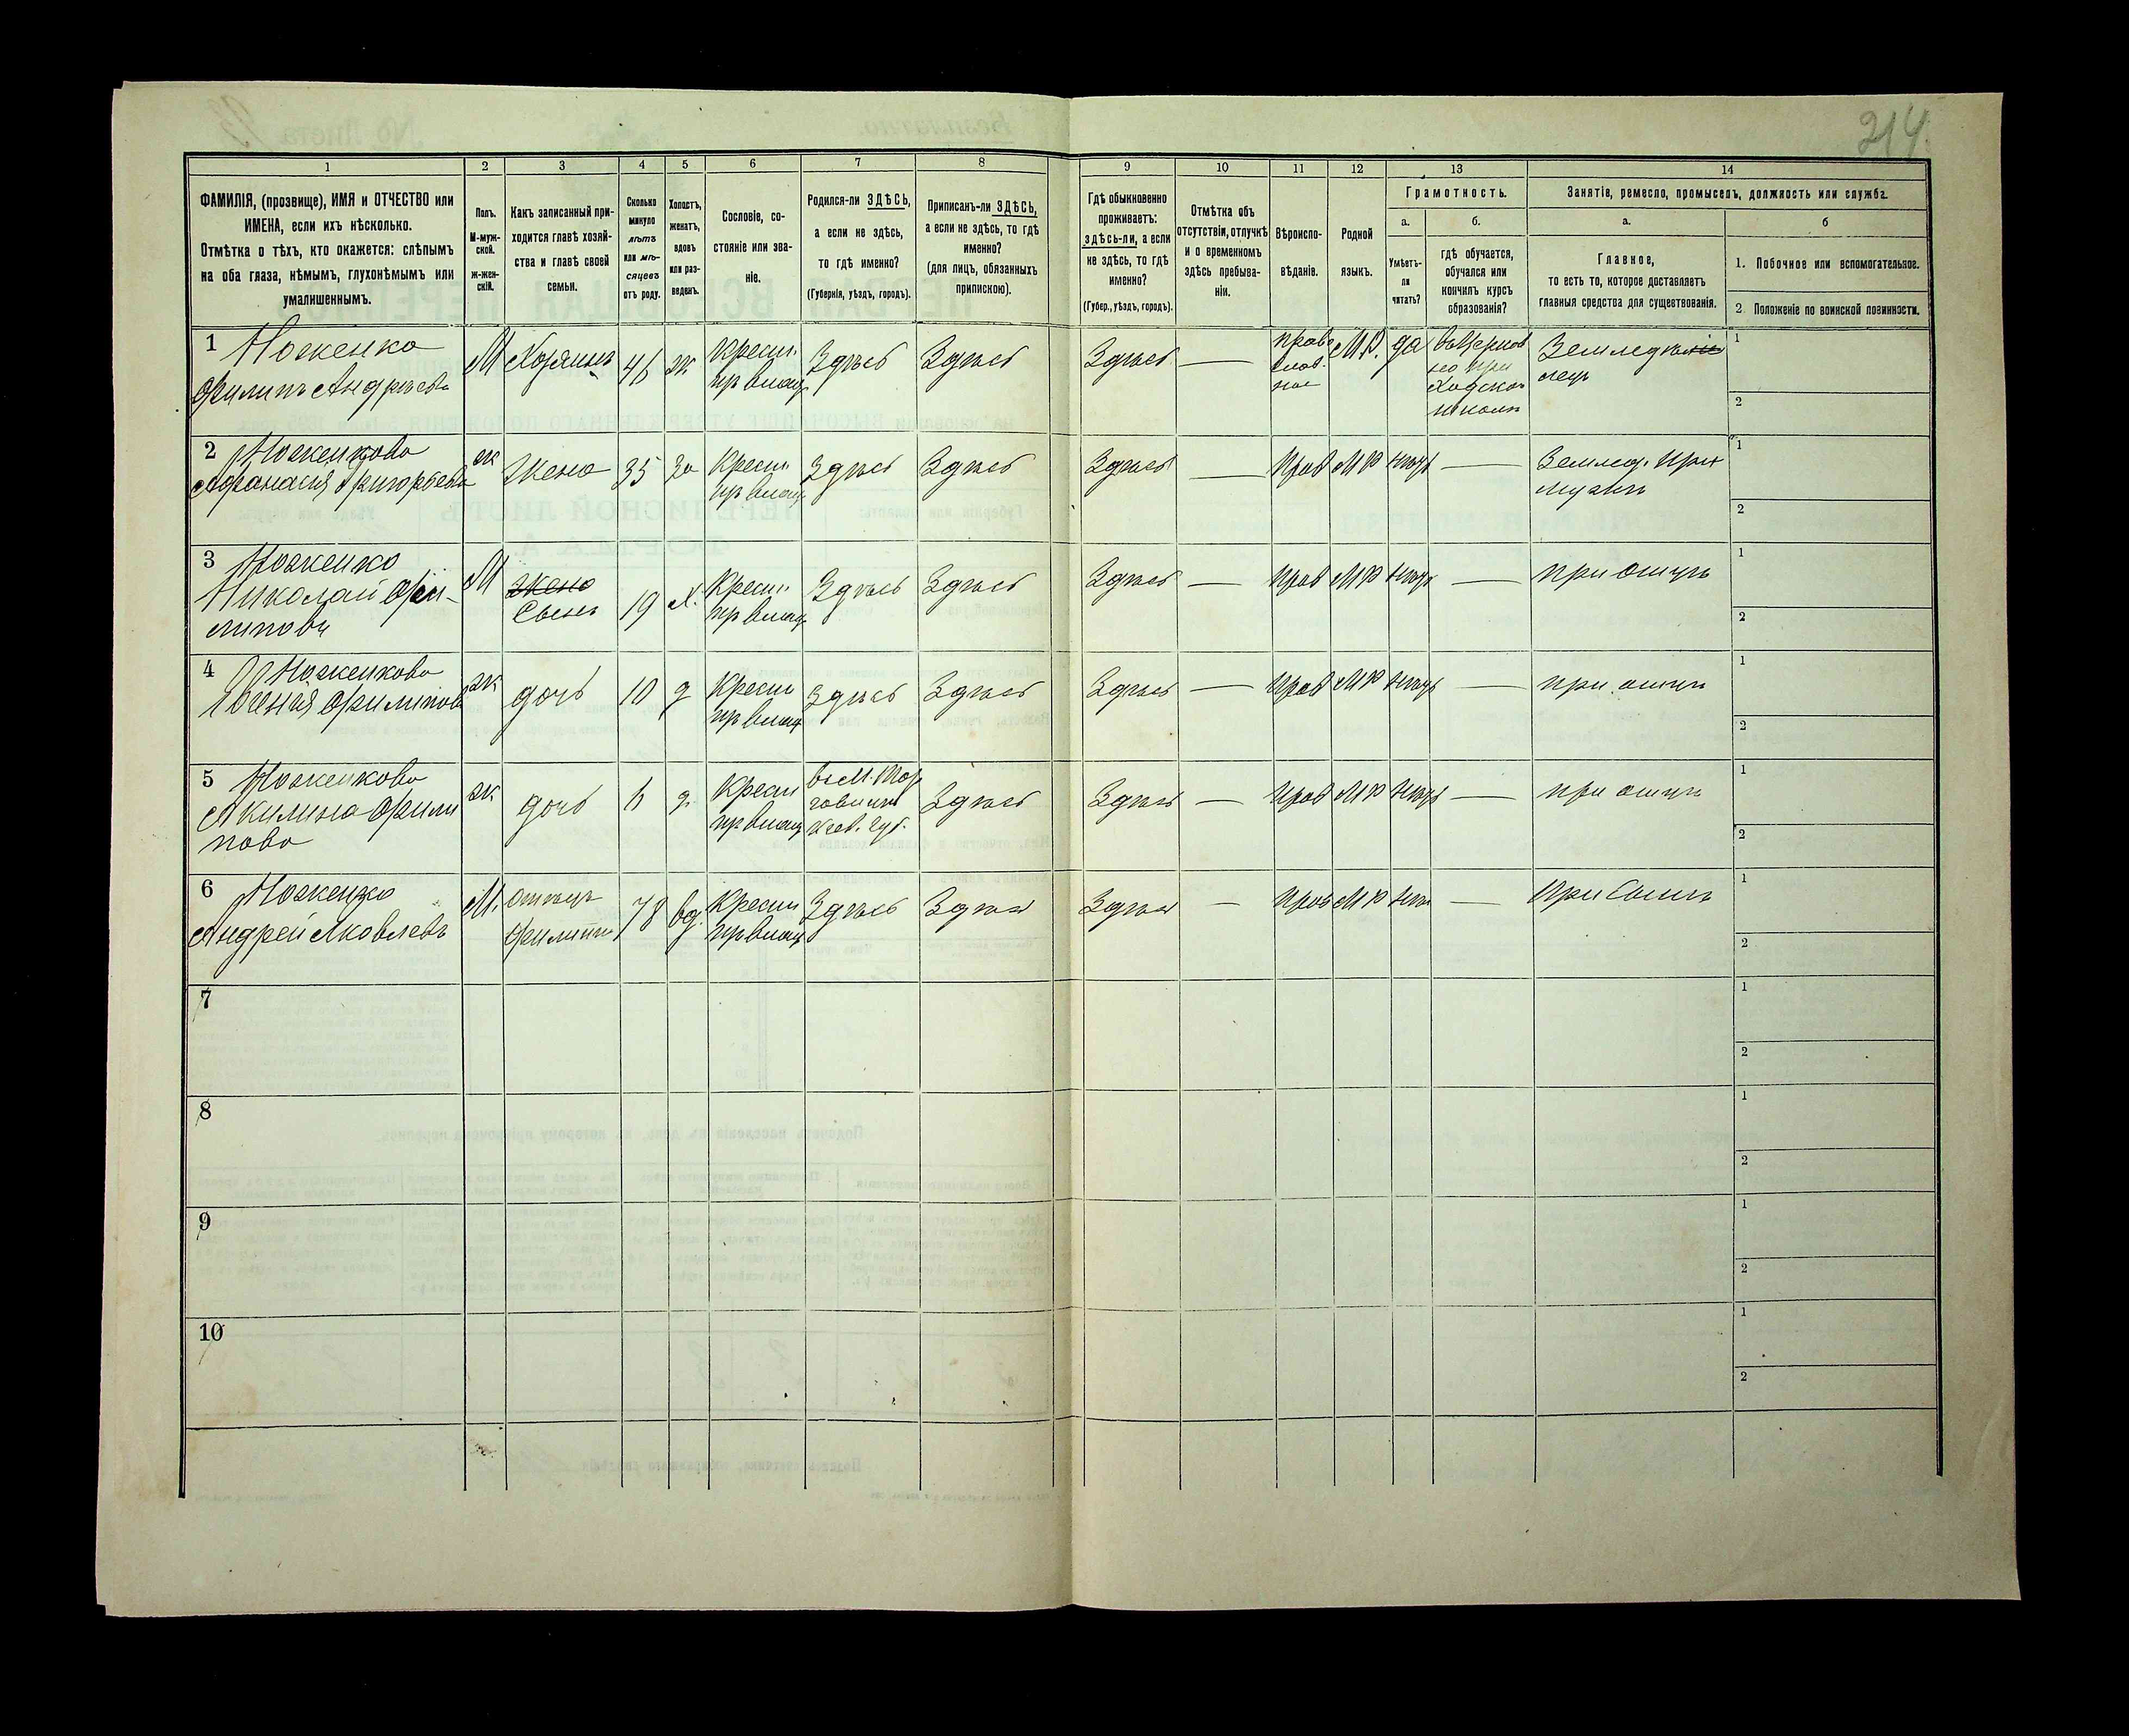 214
1 2 3 4 5 6 7 8 9 10 11 12 13 14
ФАМИЛІЯ, (прозвище), ИМЯ и ОТЧЕСТВО или
ИМЕНА, если ихъ нѣсколько.
Отмѣтка о тѣхъ, кто окажется: слѣпымъ
на оба глаза, нѣмымъ, глухонѣмымъ или
умалишеннымъ.
Полъ.
М-муж-
ской.
ж-жен-
скій.
Какъ записанный при-
ходится главѣ хозяй-
ства и главѣ своей
семьи.
Сколько
минуло
лѣтъ
или мѣ-
сяцевъ
отъ роду.
Холостъ,
женатъ,
вдовъ
или раз-
веденъ.
Сословіе, со-
стояніе или зва-
ніе.
Родился-ли ЗДѢСЬ,
а если не здѣсь,
то гдѣ именно?
(Губернія, уѣздъ, городъ).
Приписанъ-ли ЗДѢСЬ,
а если не здѣсь, то гдѣ
именно?
(для лицъ, обязанныхъ
припискою).
Гдѣ обыкновенно
проживаетъ:
здѣсь-ли, а если
не здѣсь, то гдѣ
именно?
(Губер., уѣздъ, городъ).
Отмѣтка объ
отсутствіи, отлучкѣ
и о временномъ
здѣсь пребыва-
ніи.
Вѣроиспо-
вѣданіе.
Родной
языкъ.
Грамотность.
а.
Умѣетъ-
ли
читать?
б.
гдѣ обучается,
обучался или
кончилъ курсъ
образованія?
Занятіе, ремесло, промыселъ, должность или служба.
а.
Главное,
то есть то, которое доставляетъ
главныя средства для существованія.
б
1. Побочное или вспомогательное.
2. Положеніе по воинской повинности.
1 Ноженко
Филипъ Андрѣевъ
М Хозяинъ 46 ж Крест.
Здѣсь Здѣсь Здѣсь —
право
слав
ное
М.Р. да
Ходской
школѣ
Земледѣлі
лецъ
1
2
2 Ноженкова
Афанасія Григорьева
ж Жена 35 За Крест.
Здѣсь Здѣсь Здѣсь — Прав МР нѣтъ — Землед. при
мужѣ
1
2
3 Ноженко
Николай Фи-
липовъ
М жена
Сынъ 19 х. Крест.
Здѣсь Здѣсь Здѣсь — Прав МР нѣтъ — при отцѣ
1
2
4 Ноженкова
Филипова
ж дочь 10 д Крест
Здѣсь Здѣсь Здѣсь — Прав МР нѣтъ — при отцѣ
1
2
5 Ноженкова
Акилина Фили
пова
ж дочь 6 д. Крест
въ М. Тор
говицѣ
Кіев. губ.
Здѣсь Здѣсь — Прав МР Нѣтъ — при отцѣ
1
2
6 Ноженко
Андрей Яковлевъ
М. Отецъ
Филипа
78 вд. Крест
Здѣсь Здѣсь Здѣсь — Прав МР Нѣт — При Сынѣ
1
2
7
1
2
8
1
2
9
1
2
10
1
2